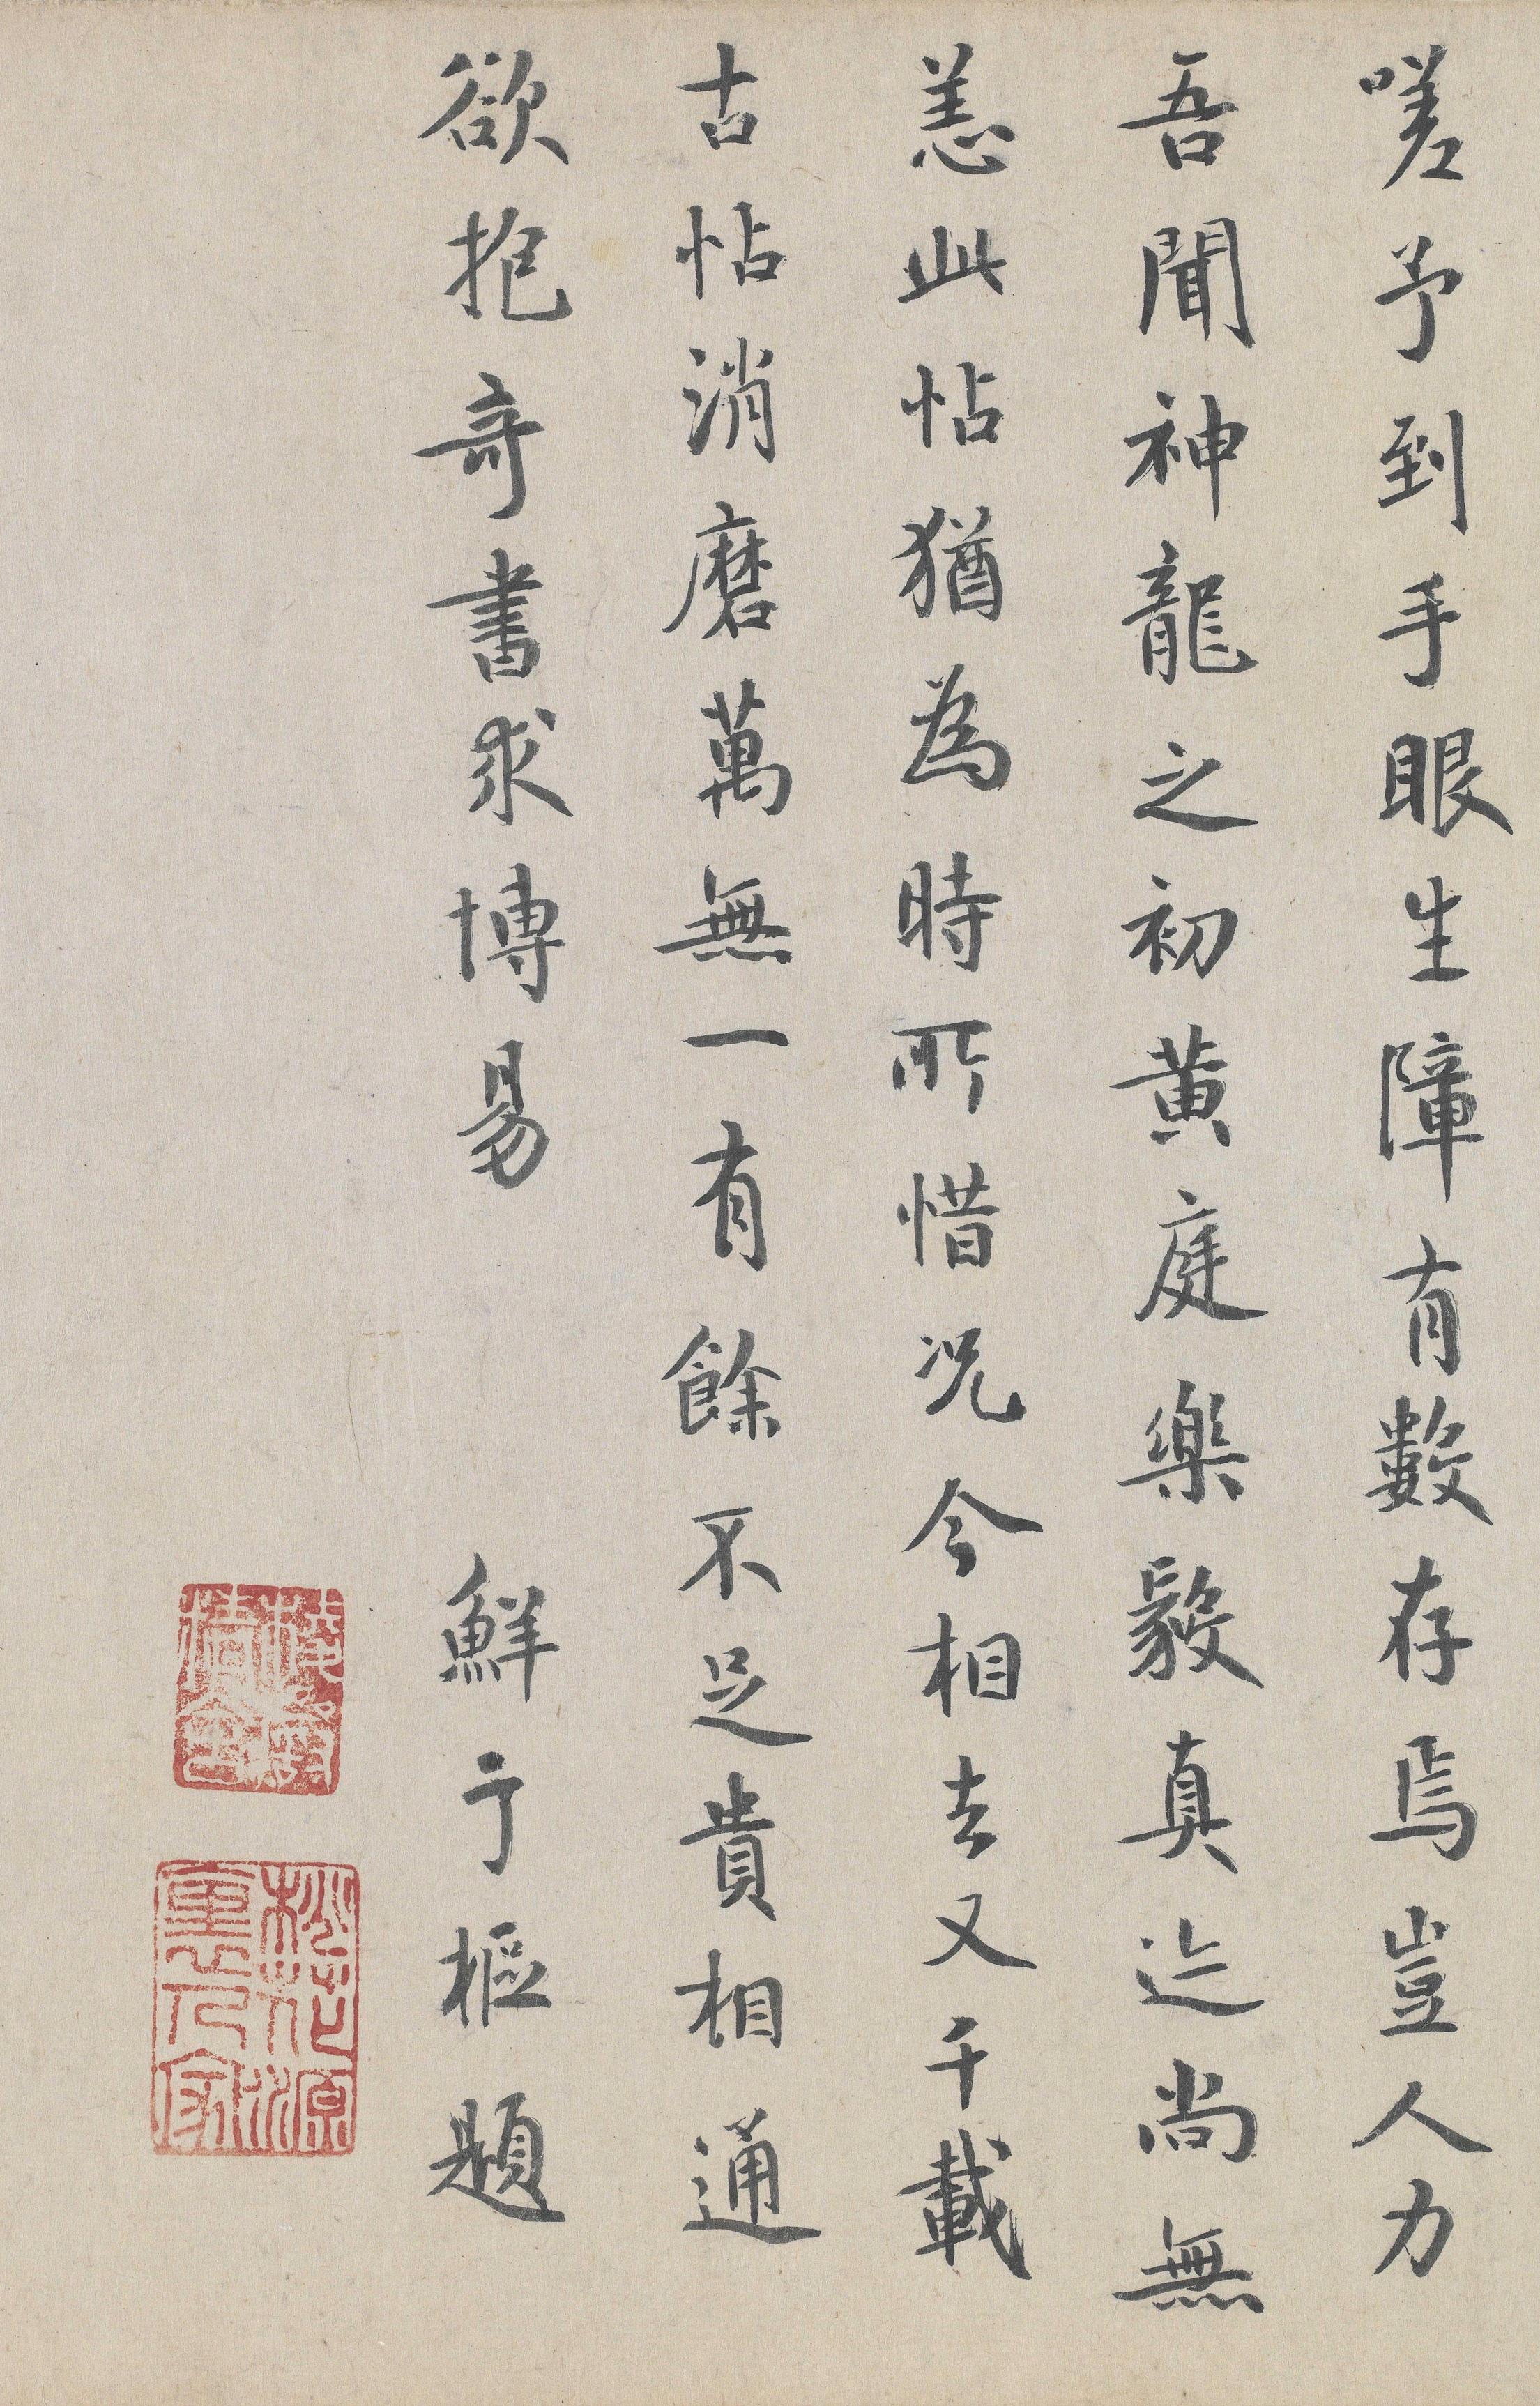 嗟予到手眼生障有數存焉豈人力
吾聞神龍之初黃庭樂毅真迹尚無
恙此帖猶為時所惜况今相去又千載
古帖消磨萬無一有餘不足貴相通
欲抱奇書求博易
鮮于樞題
桃花源裏人家